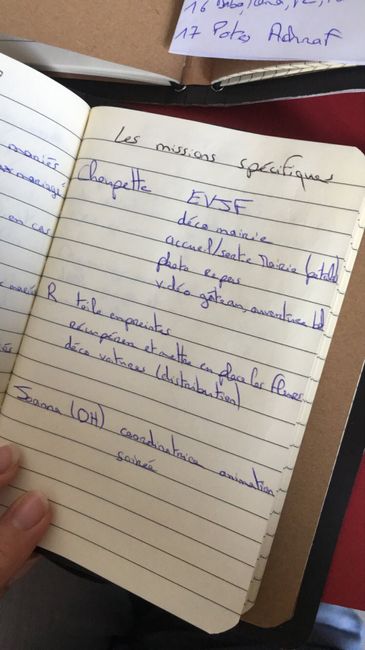 16
17 Potes Achraf
mariés
en cas
Les missions spécifiques
Choupette EVJF
déco mairie
accueil/sortie Mairie
photo repas
vidéo gâteau, ouverture bal
R toile empreintes
récupérer et mettre en place les fleurs
déco voitures (distribution)
Joanna (OH) coordinatrice animation
soirée